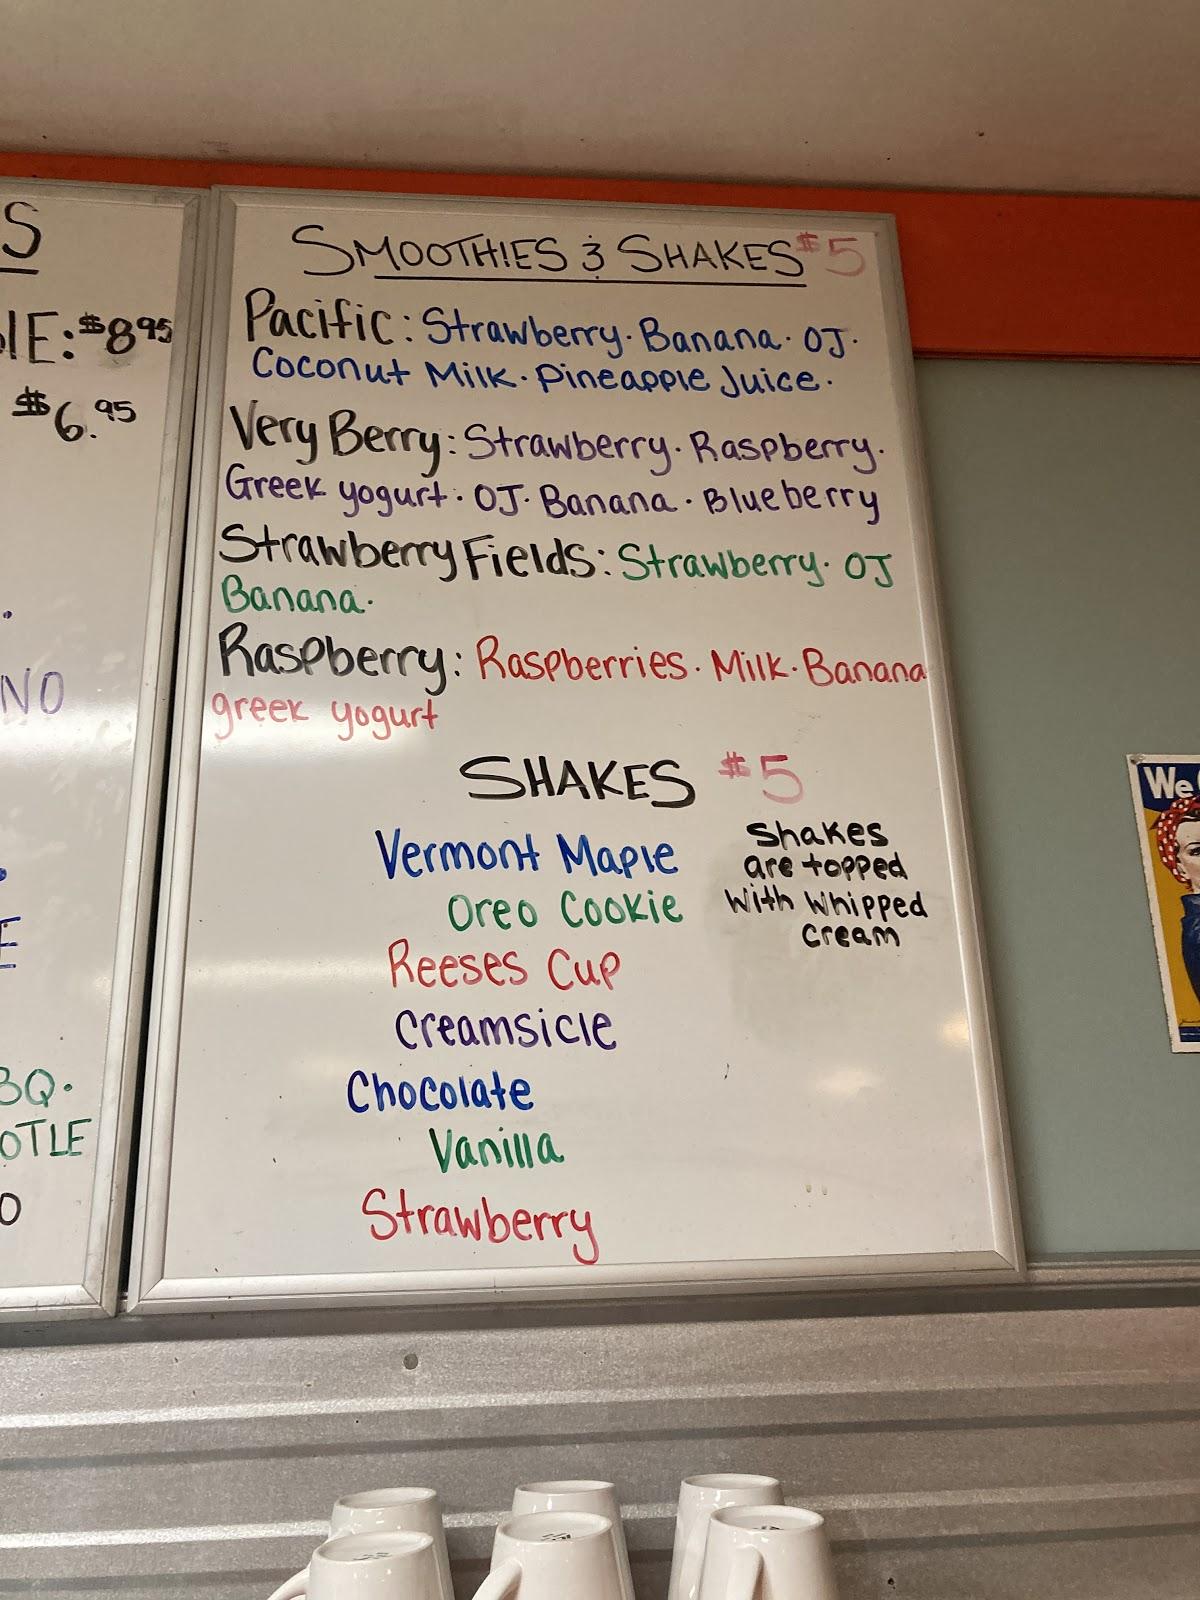 S
IE: $8.95
$6.95
NO
E
BQ.
OTLE
O
SMOOTHIES & SHAKES $5
Pacific: Strawberry. Banana. OJ.
Coconut Milk. Pineapple Juice.
Very Berry: Strawberry. Raspberry.
Greek yogurt. OJ. Banana. Blueberry
Strawberry Fields: Strawberry. OJ
Banana.
Raspberry: Raspberries. Milk. Banana
greek yogurt
SHAKES $5
Vermont Maple
Oreo Cookie
Reeses Cup
Creamsicle
Chocolate
Vanilla
Strawberry
Shakes
are topped
with whipped
cream
We